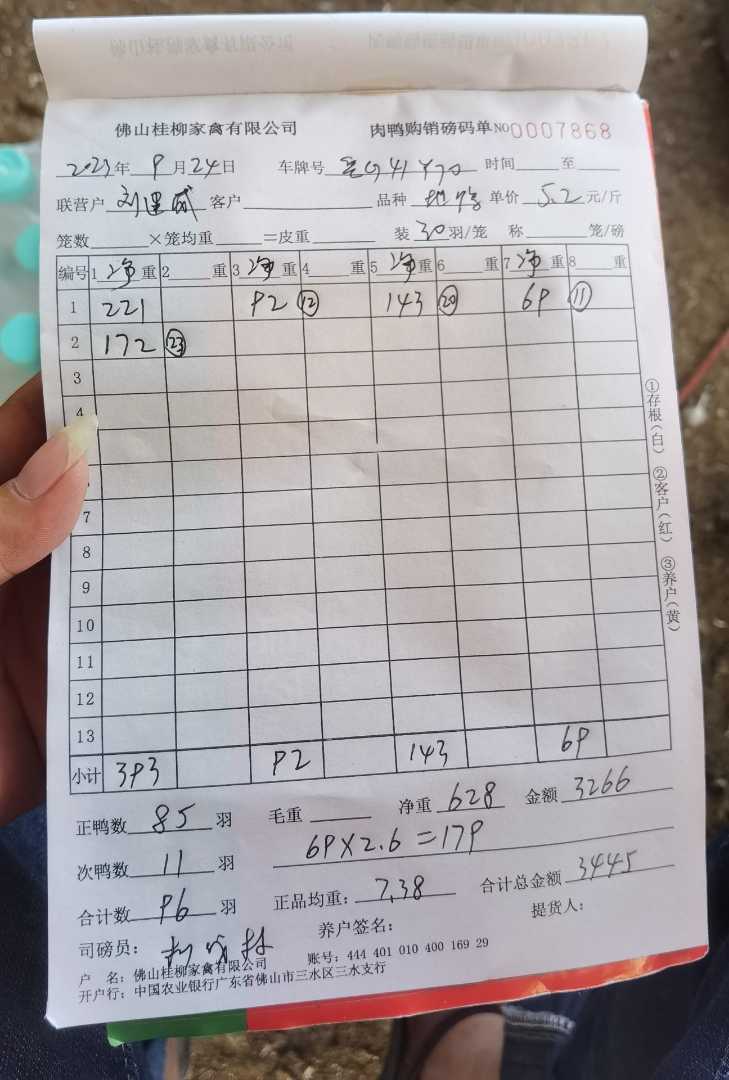 佛山桂柳家禽有限公司 肉鸭购销磅码单 NO0007868
2023年 9月24日 车牌号 时间 至
联营户 刘建威 客户 品种 单价 5.2 元/斤
笼数 ×笼均重 =皮重 装 30 羽/笼 称 笼/磅
编号 1 净 重 2 重 3 净 重 4 重 5 净 重 6 重 7 净 重 8 重
1 221 92 ⑫ 143 ⑳ 69 ⑪
2 172 ㉓
3
4
7
8
9
10
11
12
13
小计 393 92 143 69
正鸭数 85 羽 毛重 净重 628 金额 3266
69×2.6=179
次鸭数 11 羽
合计数 96 羽 正品均重: 7.38 合计总金额 3445
司磅员: 养户签名: 提货人:
户 名: 佛山桂柳家禽有限公司 账号: 444 401 010 400 169 29
开户行: 中国农业银行广东省佛山市三水区三水支行
①存根(白) ②客户(红) ③养户(黄)